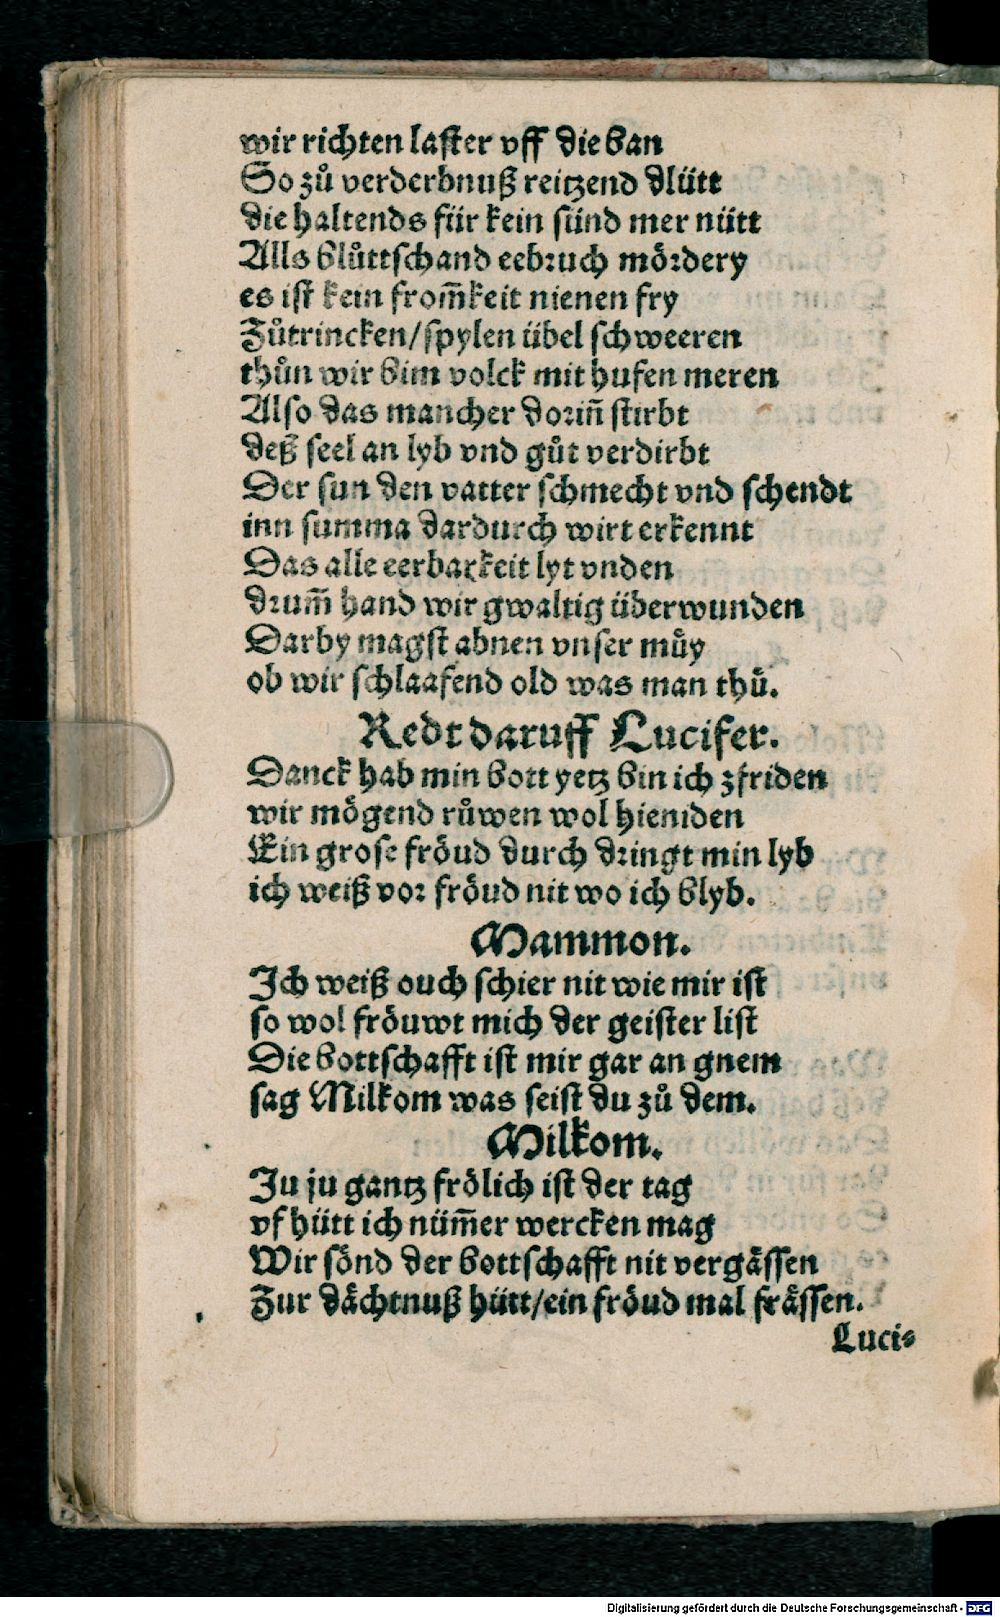 wir richten laster vff die ban
So zů verderbnuß reitzend dlütt
die haltends für kein sünd mer nütt
Alls blůttschand eebruch mördery
es ist kein from̃keit nienen fry
Zůtrincken/spylen übel schweeren
thůn wir bim volck mit hufen meren
Also das mancher dorin̄ stirbt
deß seel an lyb vnd gůt verdirbt
Der sun den vatter schmecht vnd schendt
inn summa dardurch wirt erkennt
Das alle eerbarkeit lyt vnden
drum̃ hand wir gwaltig überwunden
Darby magst abnen vnser můy
ob wir schlaafend old was man thů.
Redt daruff Lucifer.
Danck hab min bott yetz bin ich zfriden
wir mögend růwen wol hieniden
Ein grose fröud durch dringt min lyb
ich weiß vor fröud nit wo ich blyb.
Mammon.
Ich weiß ouch schier nit wie mir ist
so wol fröuwt mich der geister list
Die bottschafft ist mir gar an gnem
sag Milkom was seist du zů dem.
Milkom.
Ju ju gantz frölich ist der tag
vf hütt ich nüm̃er wercken mag
Wir sönd der bottschafft nit vergässen
Zur dächtnuß hütt/ein fröud mal frässen.
Luci⸗
Digitalisierung gefördert durch die Deutsche Forschungsgemeinschaft - DFG